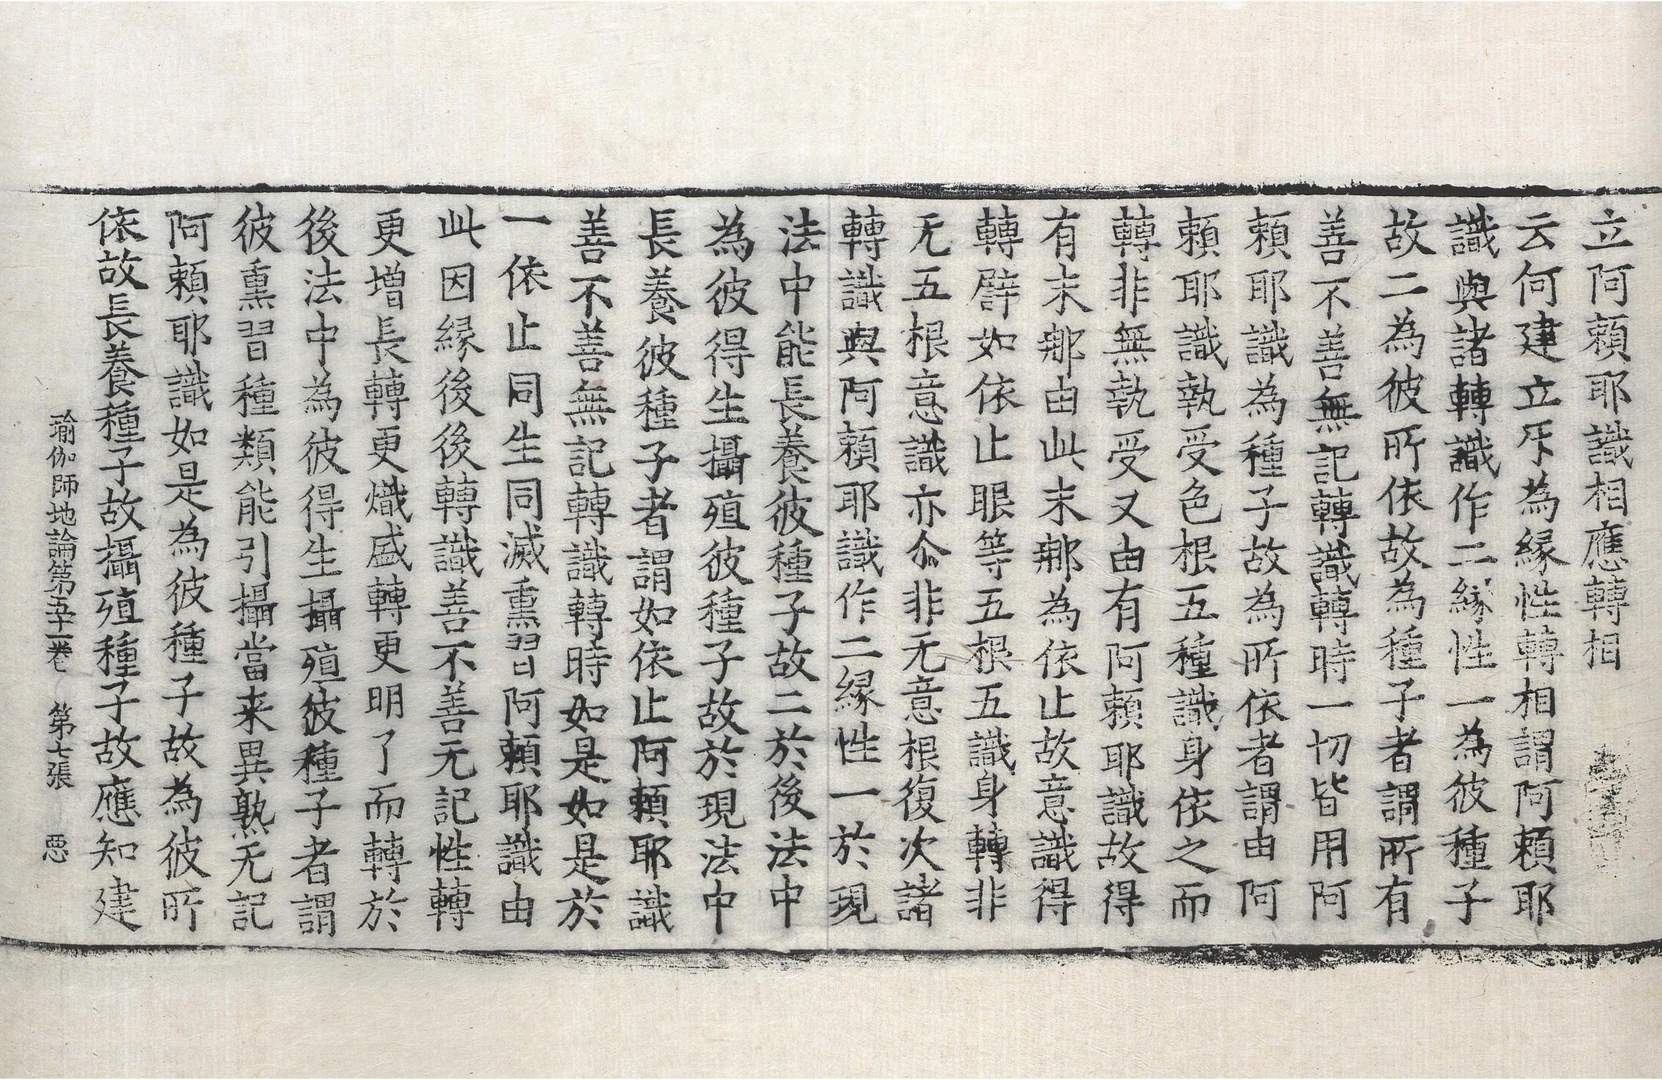 立阿賴耶識相應轉相
云何建立𠂔為緣性轉相謂阿賴耶
識與諸轉識作二緣性一為彼種子
故二為彼所依故為種子者謂所有
善不善無記轉識轉時一切皆用阿
賴耶識為種子故為所依者謂由阿
賴耶識執受色根五種識身依之而
轉非無執受又由有阿賴耶識故得
有末那由此末那為依止故意識得
轉譬如依止眼等五根五識身轉非
无五根意識亦尒非无意根復次諸
轉識與阿賴耶識作二緣性一於現
法中能長養彼種子故二於後法中
為彼得生攝殖彼種子故於現法中
長養彼種子者謂如依止阿賴耶識
善不善無記轉識轉時如是如是於
一依止同生同滅熏習阿賴耶識由
此因緣後後轉識善不善无記性轉
更增長轉更熾盛轉更明了而轉於
後法中為彼得生攝殖彼種子者謂
彼熏習種類能引攝當来異熟无記
阿賴耶識如是為彼種子故為彼所
依故長養種子故攝殖種子故應知建
瑜伽師地論第五十一卷 第七張 惡